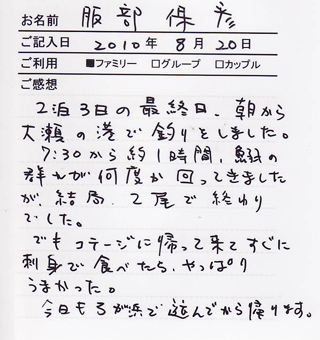 お名前 服部 保彦
ご記入日 2010年 8月 20日
ご利用 ■ファミリー □グループ □カップル
ご感想
2泊3日の最終日、朝から
大瀬の港で釣りをしました。
7:30から約1時間、魚の
群れが何度か回ってきました
が、結局、2尾で終わり
でした。
でもコテージに帰って来てすぐに
刺身で食べたら、やっぱり
うまかった。
今日もろが浜で遊んでから帰ります。